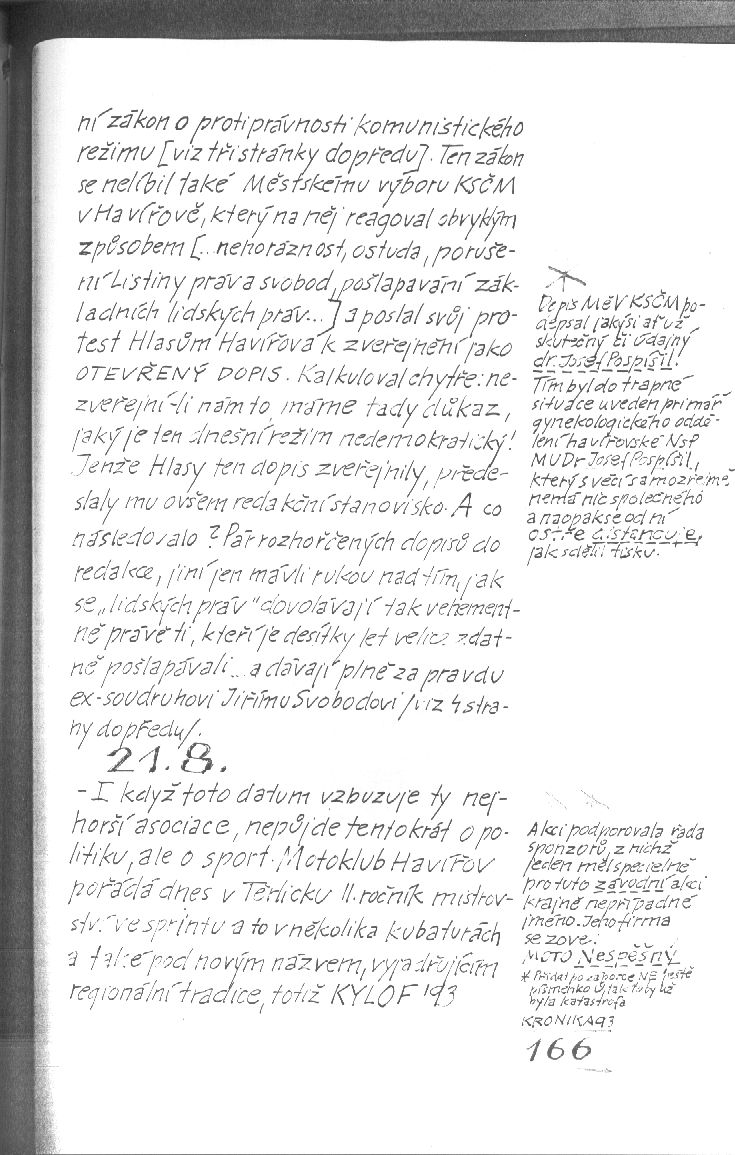 ní zákon o protiprávnosti komunistického
režimu [viz tři stránky dopředu]. Ten zákon
se nelíbil také Městskému výboru KSČM
v Havířově, který na něj reagoval obvyklým
způsobem [...nehoráznost, ostuda, poruše-
ní Listiny práv a svobod, pošlapávání zák-
ladních lidských práv...] a poslal svůj pro-
test Hlasům Havířova k zveřejnění jako
OTEVŘENÝ DOPIS. Kalkuloval chytře: ne-
zveřejní-li nám to, máme tady důkaz,
jaký je ten dnešní režim nedemokratický!
Jenže Hlasy ten dopis zveřejnily, přede-
slaly mu ovšem redakční stanovisko. A co
následovalo? Pár rozhořčených dopisů do
redakce, jiní jen mávli rukou nad tím, jak
se „lidských práv“ dovolávají tak vehement-
ně právě ti, kteří je desítky let velice zdat-
ně pošlapávali... a dávají plně za pravdu
ex-soudruhovi Jiřímu Svobodovi /viz 4 stra-
ny dopředu/.
21.8.
- I když toto datum vzbuzuje ty nej-
horší asociace, nepůjde tentokrát o po-
litiku, ale o sport. Motoklub Havířov
pořádá dnes v Těrlicku II. ročník mistrov-
ství ve sprintu a to v několika kubaturách
a také pod novým názvem, vyjadřujícím
regionální tradice, totiž KYLOF '93
Dopis MěV KSČM po-
depsal jakýsi ať už
skutečný či údajný
dr. Josef Pospíšil.
Tím byl do trapné
situace uveden primář
gynekologického oddě-
lení havířovské NsP
MUDr Josef Pospíšil,
který s věcí samozřejmě
nemá nic společného
a naopak se od ní
ostře distancuje,
jak sdělil tisku.
Akci podporovala řada
sponzorů, z nichž
jeden měl specielně
pro tuto závodní akci
krajně nepřípadné
jméno. Jeho firma
se zove:
MOTO Nespěšný
* Přidat po záborce NE ještě
písmenko Ú, tak to by už
byla katastrofa
KRONIKA 93
166